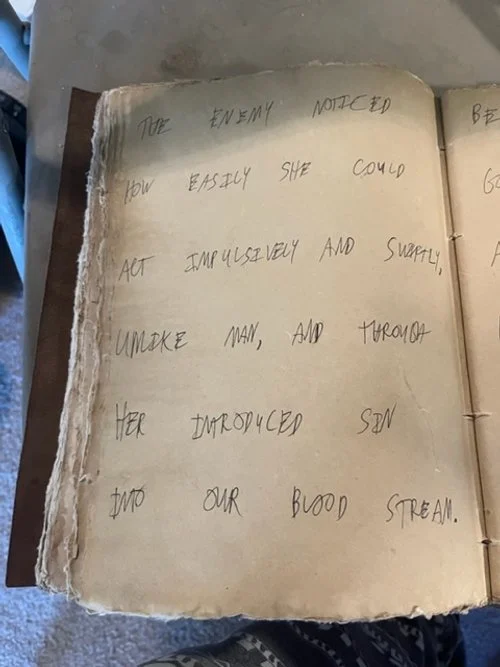 THE ENEMY NOTICED
HOW EASILY SHE COULD
ACT IMPULSIVELY AND SWIFTLY,
UNLIKE MAN, AND THROUGH
HER INTRODUCED SIN
INTO OUR BLOOD STREAM.